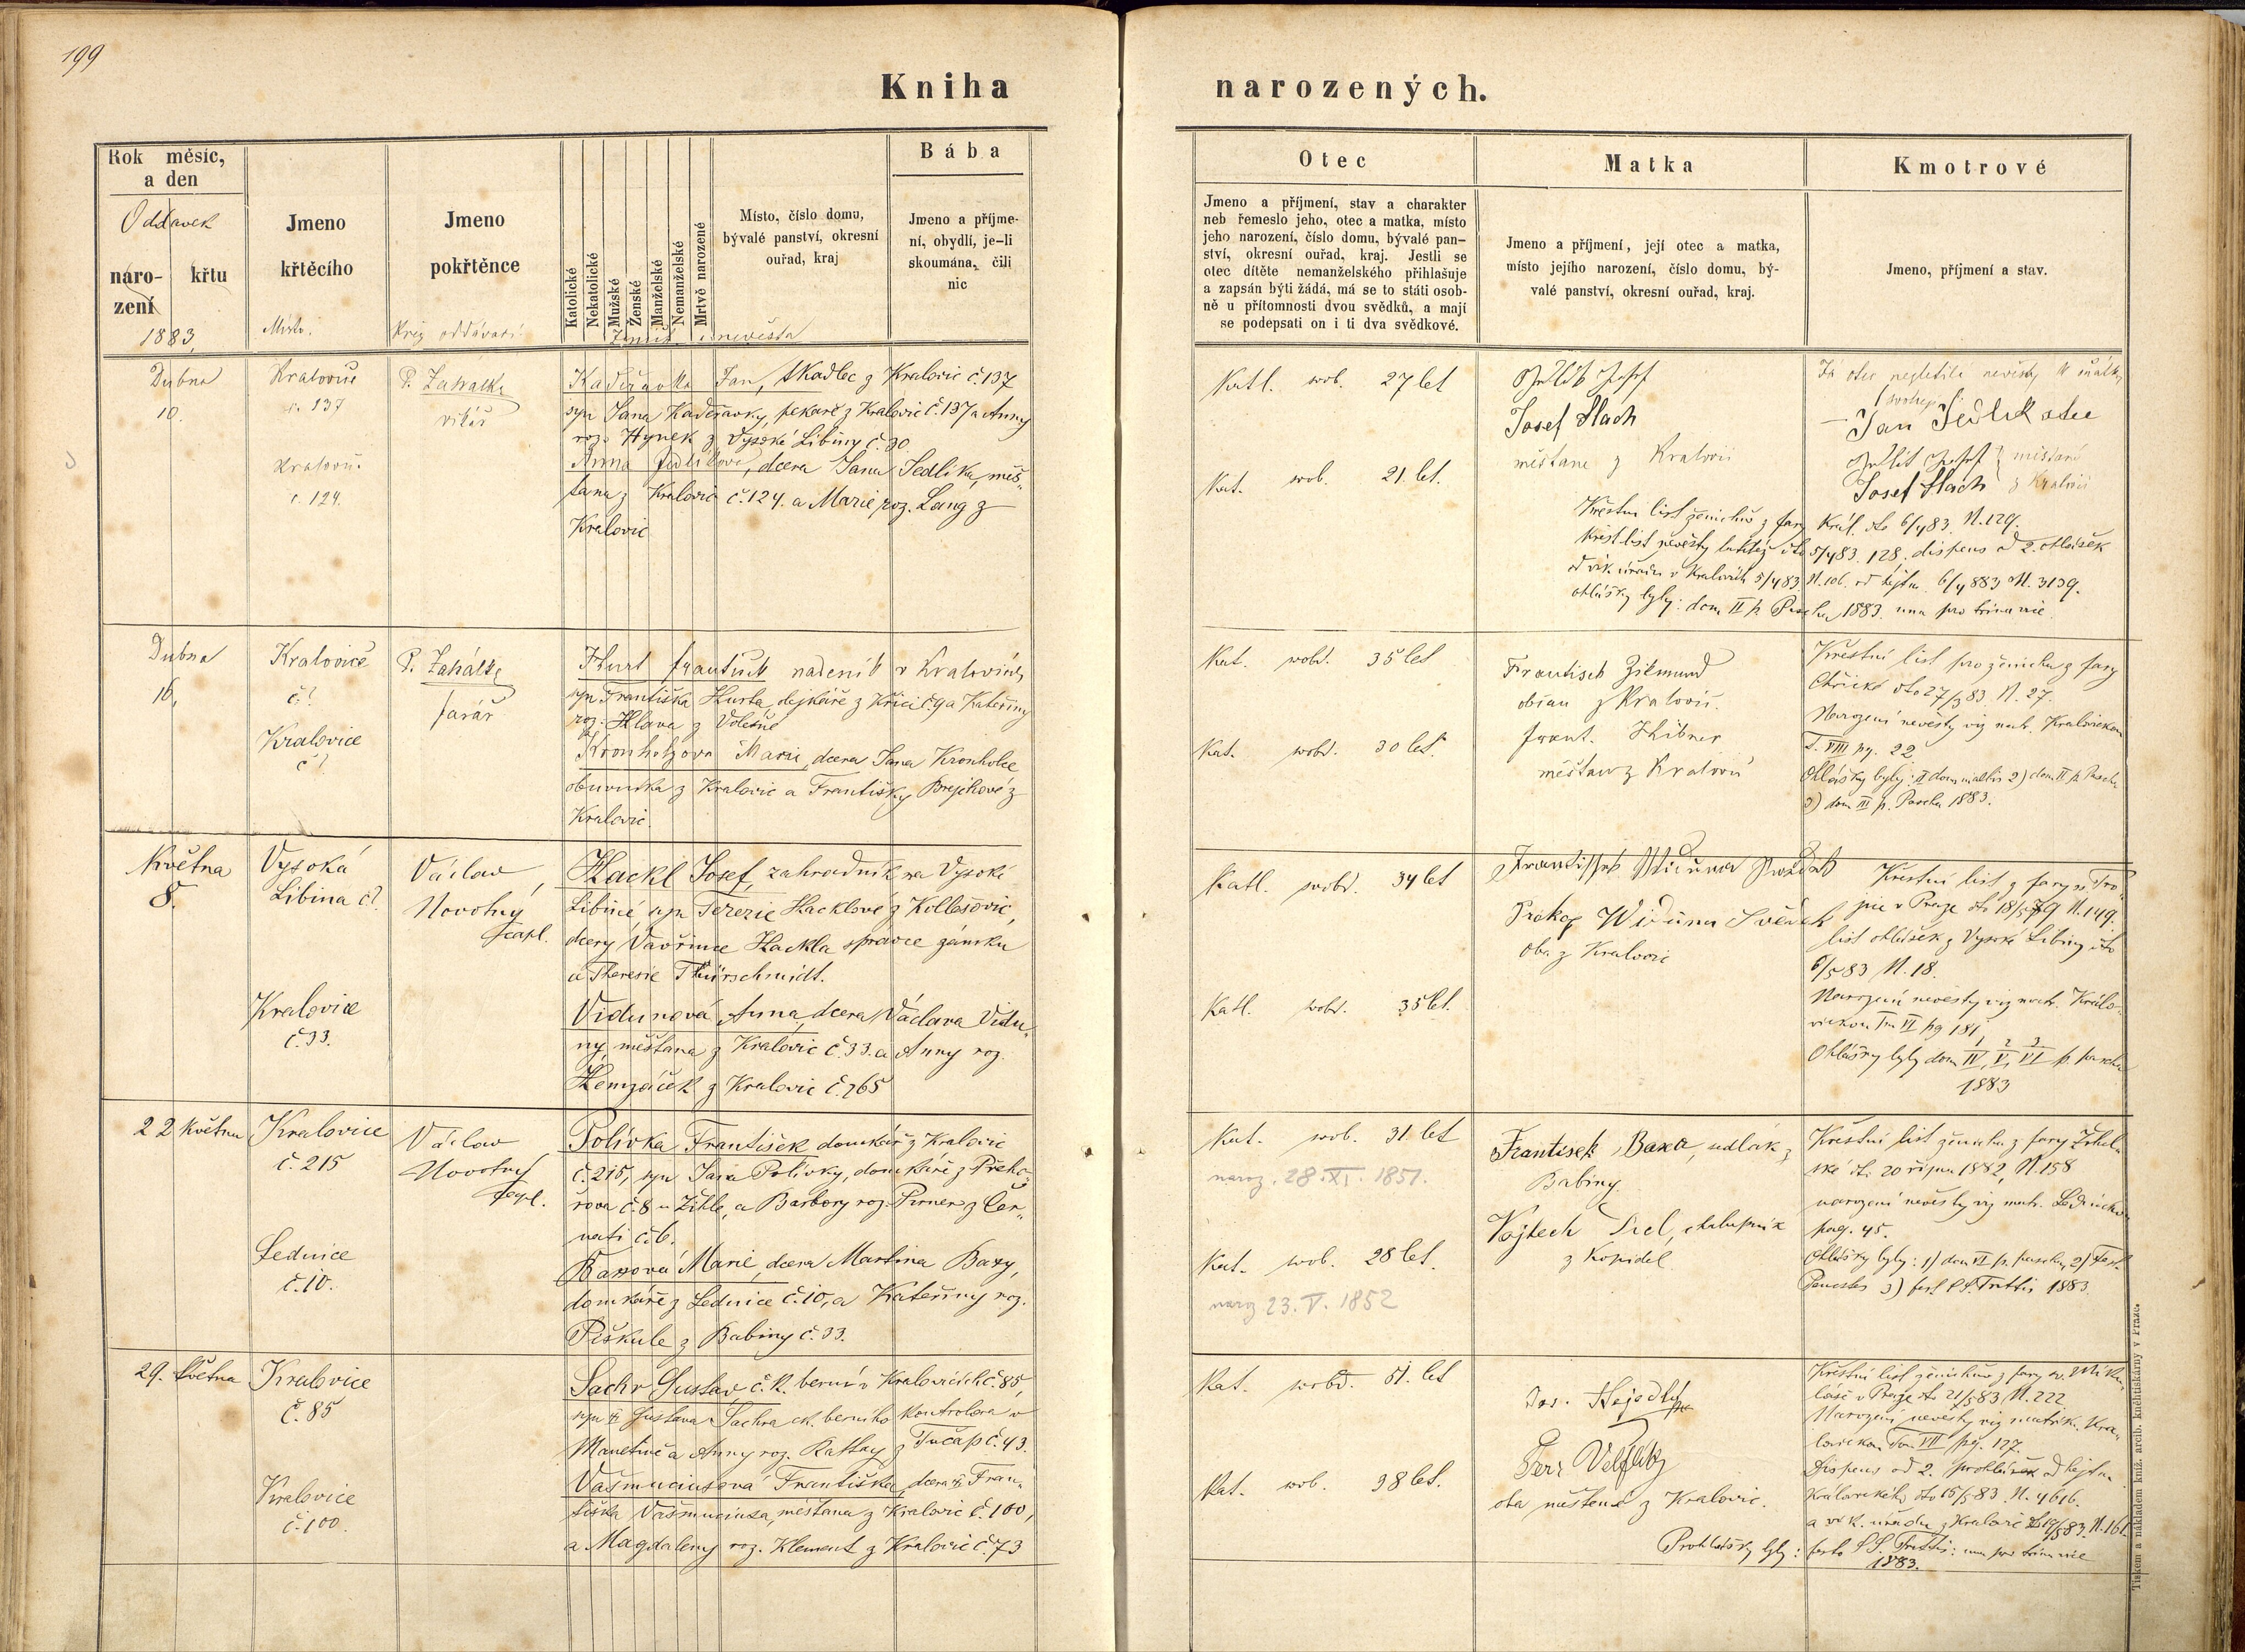 199
Kniha narozených.
Rok měsíc, a den
Oddavek
naro-zení
křtu
1883
Jmeno křtěcího
Místo.
Jmeno pokřtěnce
Kněz oddávací
Katolické
Nekatolické
Mužské
Ženské
Manželské
Nemanželské
Mrtvě narozené
Ženich nevěsta
Místo, číslo domu,
bývalé panství, okresní
ouřad, kraj
Bába
Jmeno a příjme-
ní, obydlí, je-li
skoumána, čili
nic
Otec
Jmeno a příjmení, stav a charakter
neb řemeslo jeho, otec a matka, místo
jeho narození, číslo domu, bývalé pan-
ství, okresní ouřad, kraj. Jestli se
otec dítěte nemanželského přihlašuje
a zapsán býti žádá, má se to státi osob-
ně u přítomnosti dvou svědků, a mají
se podepsati on i ti dva svědkové.
Matka
Jmeno a příjmení, její otec a matka,
místo jejího narození, číslo domu, bý-
valé panství, okresní ouřad, kraj.
Kmotrové
Jmeno, příjmení a stav.
Dubna
10.
Kralovic
č. 137
Kralovic
č. 124.
P. Zahálka
vikář
Kadeřavka Jan, tkadlec z Kralovic č. 137
syn Jana Kadeřavky, pekaře z Kralovic č. 137 a Anny
roz. Hynek z Vysoké Libiny č. 30.
Anna Jedlikova, dcera Jana Jedlika, měš-
ťana z Kralovic č. 124. a Marie roz. Lang z
Kralovic
Katl. svob. 27 let
Kat. svob. 21. let.
Josef Hach
měšťané z Kralovic
Já otec nezletilé nevěsty
Jan Jedlik otec
Josef Hach
měšťané z Kralovic
Křestní list ženichův z fary Král. dto 6/4 83. N. 129.
Křest list nevěsty tutéž dto 5/4 83. 128. dispens od 2. ohlášek
od vik. úřadu v Kralovicích 5/4 83 N. 106. od hejtm. 6/4 883 N. 3139.
ohlášky byly: dom II p. Pascha 1883. una pro trina vice
Dubna
16.
Kralovice
č.
Kralovice
č.
P. Zahálka
farář
Hurt František nádeník v Kralovicích
syn Františka Hurta, dejkaře z Kříce č. 9 a Kateřiny
roz. Hlava z Volešné
Kronholzova Marie, dcera Jana Kronholce
obuvníka z Kralovic a Františky Brejchové z
Kralovic.
Kat. svobd. 35 let
Kat. svobd. 30 let.
Frantisek Zikmund
občan z Kralovic.
Frant. Hibner
měšťan z Kralovic
Křestní list pro ženicha z fary
Chříčké dto 27/3 83. N. 27.
Narození nevěsty viz matr. Kralovickou
T. VIII pg. 22
Ohlášky byly: 2) dom II p. Pascha
3) dom III p. Pascha 1883.
Května
8.
Vysoká
Libina č.
Kralovice
č. 33.
Václav
Novotný
capl.
Hackl Josef, zahradník na Vysoké
Libině, syn Terezie Hacklové z Kollešovic,
dcery Vavřince Hackla správce zámku
a Theresie Thürschmidt.
Vidunová Anna dcera Václava Vidu-
ny, měšťana z Kralovic č. 33. a Anny roz.
Hemzáček z Kralovic č. 165
Katl. svobd. 34 let
Katl. svobd. 35 let.
Prokop Widuna Svědek
oba z Kralovic
Křestní list z fary
v Praze dto N. 149.
list ohlášek z Vysoké Libiny dto
6/5 83 N. 18.
Narození nevěsty viz matr. Králo-
vickou Tm VI pg 181
Ohlášky byly dom IV, V, VI p. pascha
1883
22 Května
Kralovice
č. 215
Lednice
č. 10.
Václav
Novotný
capl.
Polívka František domkář z Kralovic
č. 215, syn Jana Polívky, domkáře z Přeho-
řova č. 8 u Žihle, a Barbory roz. Pirner z Čer-
nati č. 6.
Baxová Marie, dcera Martina Baxy,
domkáře z Lednice č. 10, a Kateřiny roz.
Piškule z Babiny č. 33.
Kat. svob. 31. let
naroz. 28. XI. 1851.
Kat. svob. 28 let.
naroz 23. V. 1852
Frantisek Baxa, sedlák z
Babiny.
Vojtech chalupník
z Kopidel
Křestní list ženicha z fary Žihel-
ské dto. 20 října 1882, N. 158
narození nevěsty viz matr. Lednickou
pag. 45.
Ohlášky byly: 1) dom VI p. pascha, 2) Fest.
Pentec 3) fest SS. Tritis 1883.
29. Května
Kralovice
č. 85
Kralovice
č. 100.
Sachr Gustav c. k. berní v Kralovicích č. 85,
syn Gustava Sachra ck. berního kontrolora v
Manetíně a Anny roz. Rattay z Tučap č. 43.
Vašmuciusová Františka, dcera Fran-
tiška Vašmuciusa, měšťana z Kralovic č. 100,
a Magdaleny roz. Klement z Kralovic č. 73
Kat. svobd. 51. let
Kat. svob. 38 let.
Jos. Nejedlý
Ferd Velfík
oba měšťané z Kralovic.
Křestní list ženichův z fary sv. Miku-
láše v Praze dto 21/5 83, N. 222
Narození nevěsty viz matrik. Kra-
lovickou Tom VII pg. 127.
Dispens od 2. prohlášek od hejtm.
Královického dto 15/5 83 N. 4616.
a vik. úřadu z Kralovic 19/5 83. N. 161
Prohlášky byly: festo SS. Tritis: una pro trina vice
1883.
Tiskem a nákladem kníž. arcib. knihtiskárny v Praze.